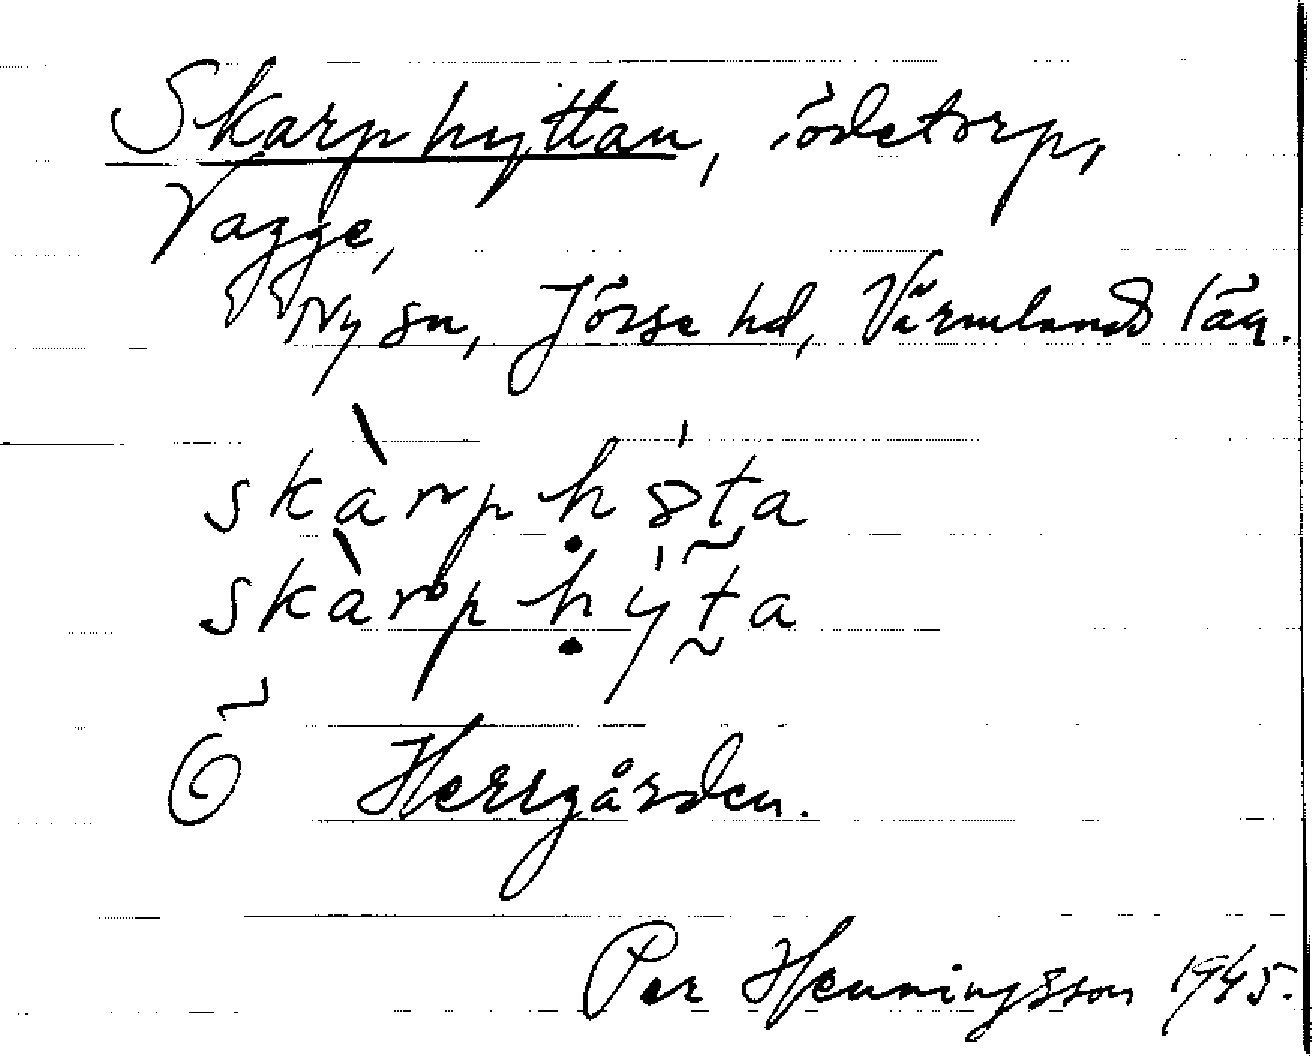 Skarphyttan, ödetorp,
Vagge,
Ny sn, Jösse hd, Värmlands län.
skàrpḥ8ta
skàrpḥyta
Ö Herrgården.
Per Henningsson 1945.